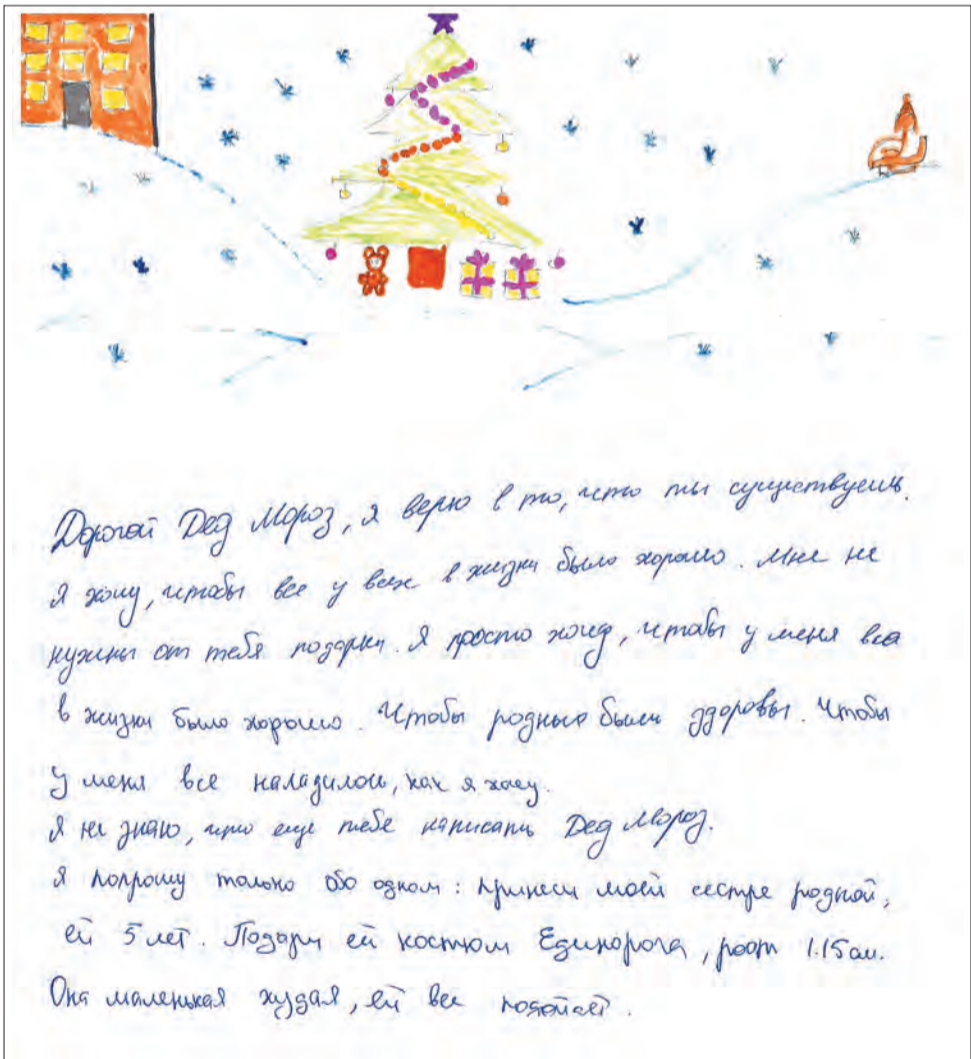 Дорогой Дед Мороз, я верю в то, что ты существуешь.
Я хочу, чтобы все у всех в жизни было хорошо. Мне не
нужны от тебя подарки. Я просто хочу, чтобы у меня все
в жизни было хорошо. Чтобы родные были здоровы. Чтобы
у меня все наладилось, как я хочу.
Я не знаю, что еще тебе написать Дед Мороз.
Я попрошу только обо одном: принеси моей сестре родной,
ей 5 лет. Подари ей костюм Единорога, рост 1.15 см.
Она маленькая худая, ей все подойдет.